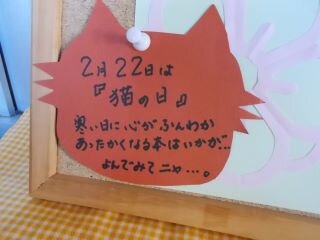 2月22日は
『猫の日』
寒い日に心がふんわか
あったかくなる本はいかが…
よんでみてニャ…。